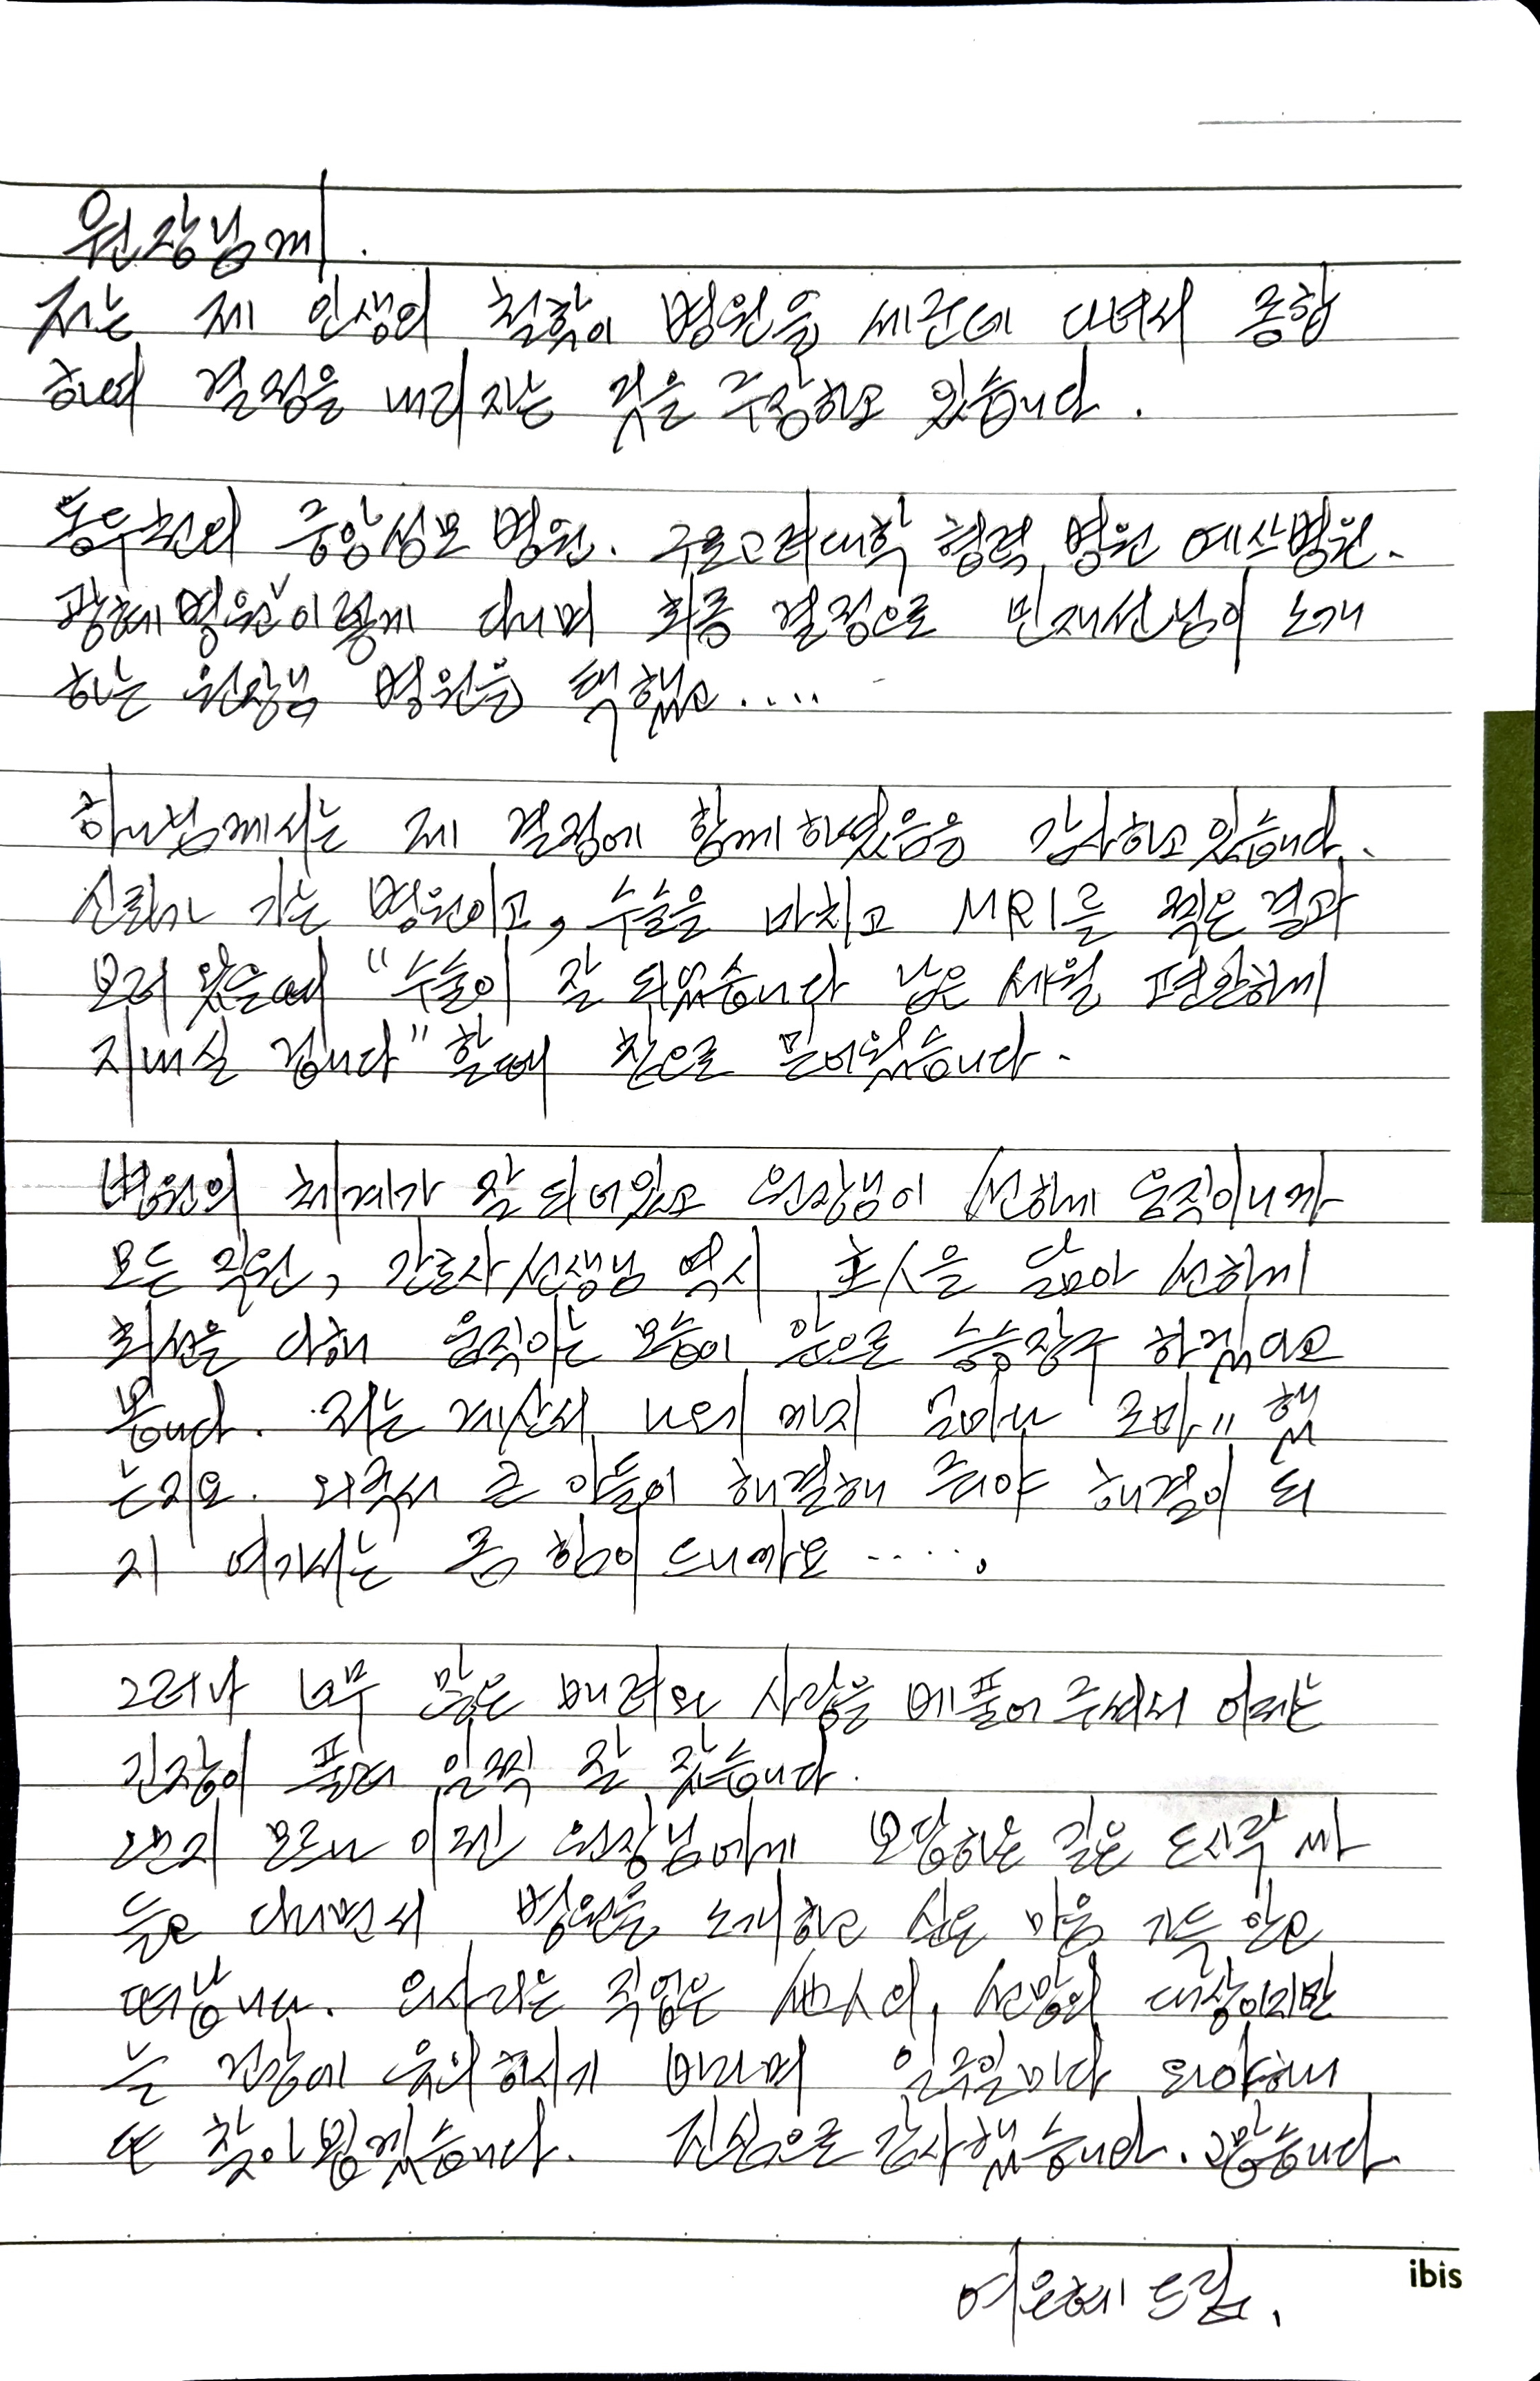 원장님께.
저는 제 인생의 철학이 병원을 세군데 다녀서 종합
하여 결정을 내리자는 것을 주장하고 있습니다.
동두천의 중앙성모병원. 구로고려대학 협력 병원 예스병원.
광혜병원 이렇게 다니며 최종 결정으로 민재선님이 소개
하는 원장님 병원을 택했고.....
하나님께서는 제 결정에 함께하셨음을 감사하고 있습니다.
신뢰가 가는 병원이고, 수술을 마치고 MRI를 찍은 결과
보러 왔을때 "수술이 잘 되었습니다 남은 세월 편안하게
지내실 겁니다" 할때 참으로 믿어웠습니다.
병원의 체계가 잘 되어있고 원장님이 선하게 움직이니까
모든 직원, 간호사선생님 역시 主人을 닮아 선하게
최선을 다해 움직이는 모습이 앞으로 승승장구 하겠다고
봅니다. 저는 계산서 나오기 까지 얼마나 조마〃 했
는지요. 의족서 큰 아들이 해결해 줘야 해결이 되
지 여기서는 좀 힘이 드니까요 ......
그러나 너무 많은 배려와 사랑을 베풀어 주셔서 어제는
긴장이 풀려 일찍 잘 잤습니다.
왠지 모르나 이젠 원장님에게 보답하는 길은 도시락 싸
들고 다니면서 병원을 소개하고 싶은 마음 가득 안고
떠납니다. 의사라는 직업은 선망의 대상이지만
늘 건강에 유의하시기 바라며 일주일마다 와야하니
또 찾아뵙겠습니다. 진심으로 감사했습니다. 고맙습니다.
여운혜 드림.
ibis